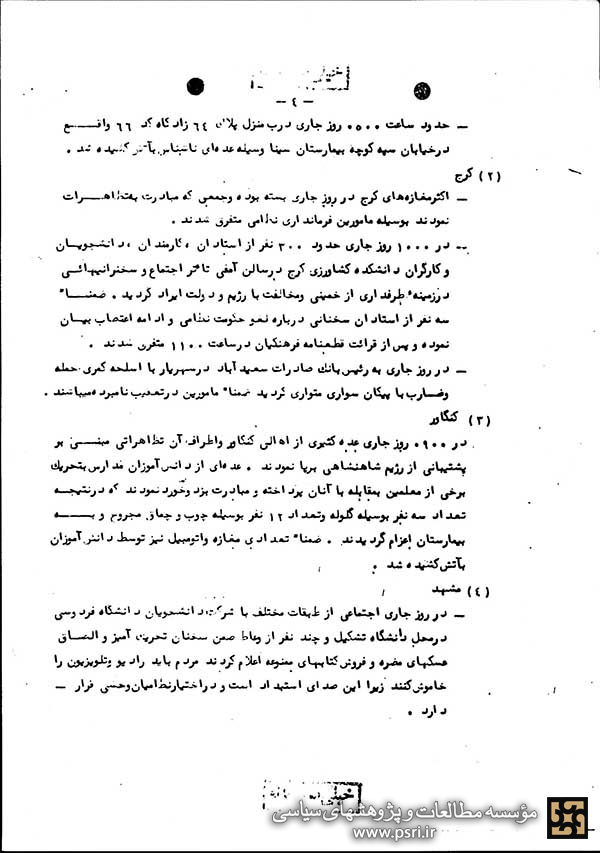 خیلی
- ٤ -
- حدود ساعت ٠٥٠٠ روز جاری درب منزل پلاک ٦٤ زادگاه کد ٦٦ واقع
درخیابان سپه کوچه بیمارستان سینا وسیله عده‌ای ناشناس بآتش کشیده شد .
(٢) کرج
- اکثر مغازه‌های کرج در روز جاری بسته بوده وجمعی که مبادرت به‌تظاهرات
نمودند بوسیله مامورین فرمانداری نظامی متفرق شدند .
- در ١٠٠٠ روز جاری حدود ٣٠٠ نفر از استادان ، کارمندان ، دانشجویان
و کارگران دانشکده کشاورزی کرج درسالن آمفی تاتر اجتماع و سخنرانیهائی
درزمینه طرفداری از خمینی ومخالفت با رژیم و دولت ایراد گردید . ضمنا"
سه نفر از استادان سخنانی درباره لغو حکومت نظامی و ادامه اعتصاب بیان
نموده و پس از قرائت قطعنامه فرهنگیان درساعت ١١٠٠ متفرق شدند .
- در روز جاری به رئیس بانک صادرات سعیدآباد درشهریار با اسلحه کمری حمله
وضارب با پیکان سواری متواری گردید ضمنا" مامورین درتعقیب نامبرده میباشند .
(٣) کنگاور
در ٠٩٠٠ روز جاری عده کثیری از اهالی کنگاور واطراف آن تظاهراتی مبنی بر
پشتیبانی از رژیم شاهنشاهی برپا نمودند . عده‌ای از دانش‌آموزان مدارس بتحریک
برخی از معلمین بمقابله با آنان پرداخته و مبادرت بزد وخورد نمودند که درنتیجه
تعداد سه نفر بوسیله گلوله وتعداد ١٢ نفر بوسیله چوب و چماق مجروح و به
بیمارستان اعزام گردیدند . ضمنا" تعدادی مغازه واتومبیل نیز توسط دانش‌آموزان
بآتش کشیده شد .
(٤) مشهد
- در روز جاری اجتماعی از طبقات مختلف با شرکت دانشجویان دانشگاه فردوسی
درمحل دانشگاه تشکیل و چند نفر از وعاظ ضمن سخنان تحریک آمیز و الصاق
عکسهای مضره و فروش کتابهای ممنوعه اعلام کردند مردم باید رادیو وتلویزیون را
خاموش کنند زیرا این صدای استبداد است و دراختیار نظامیان وحشی قرار -
دارد .
خیلی
مؤسسه مطالعات و پژوهشهای سیاسی
www.psri.ir